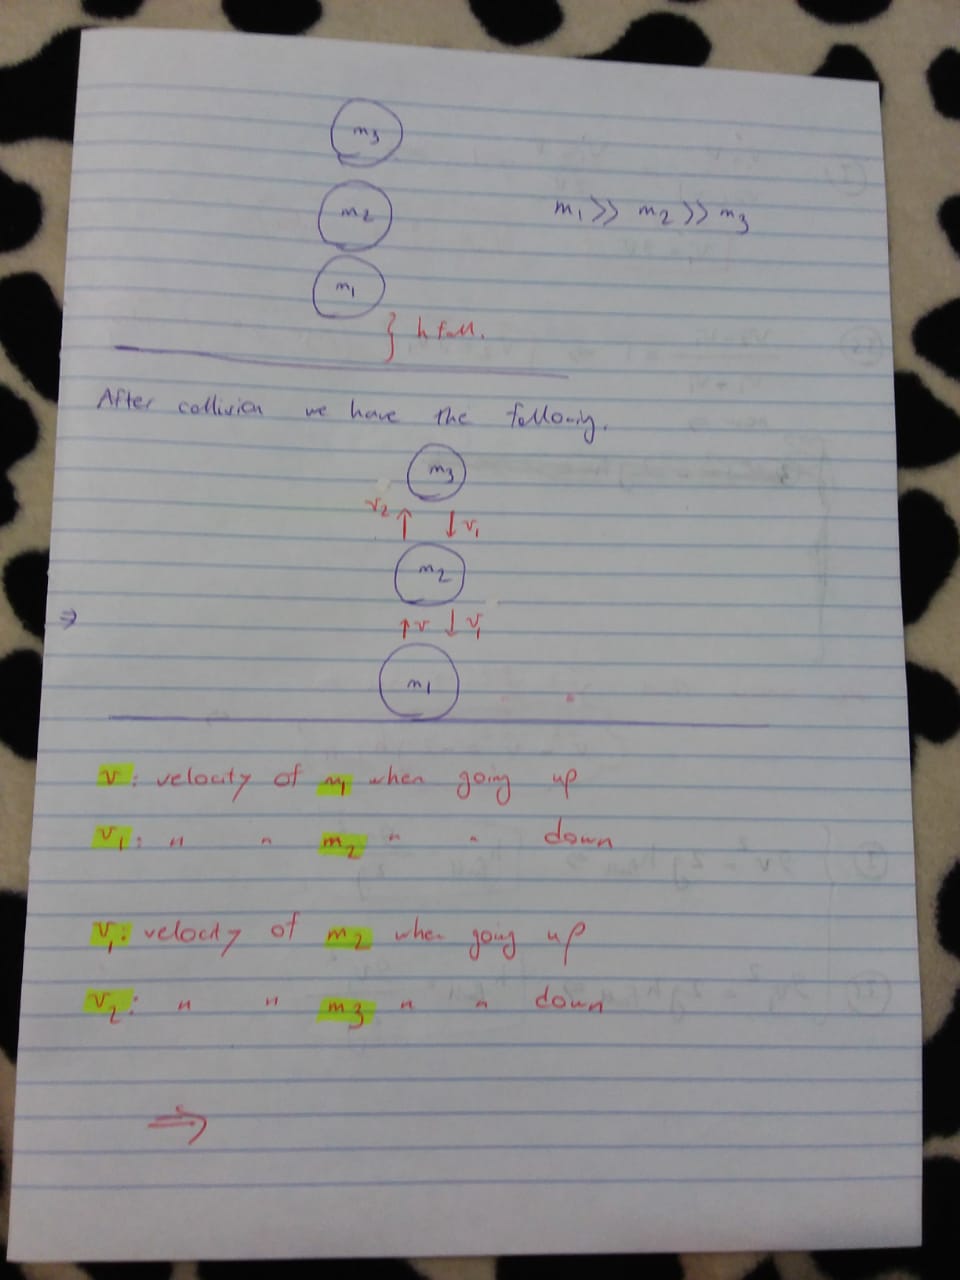 m3
m2
m1 >> m2 >> m3
m1
} h fall.
After collision we have the following.
m3
v2 ↑ ↓ v1
m2
⇒
↑ v ↓ v1
m1
v: velocity of m1 when going up
v1: " " m2 " " down
v1: velocity of m2 when going up
v2: " " m3 " " down
⇒